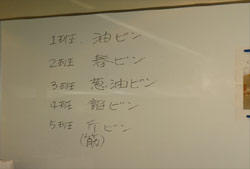 1班. 油ビン
2班 春ビン
3班 葱油ビン
4班 ビン
5班 斤ビン
(筋)